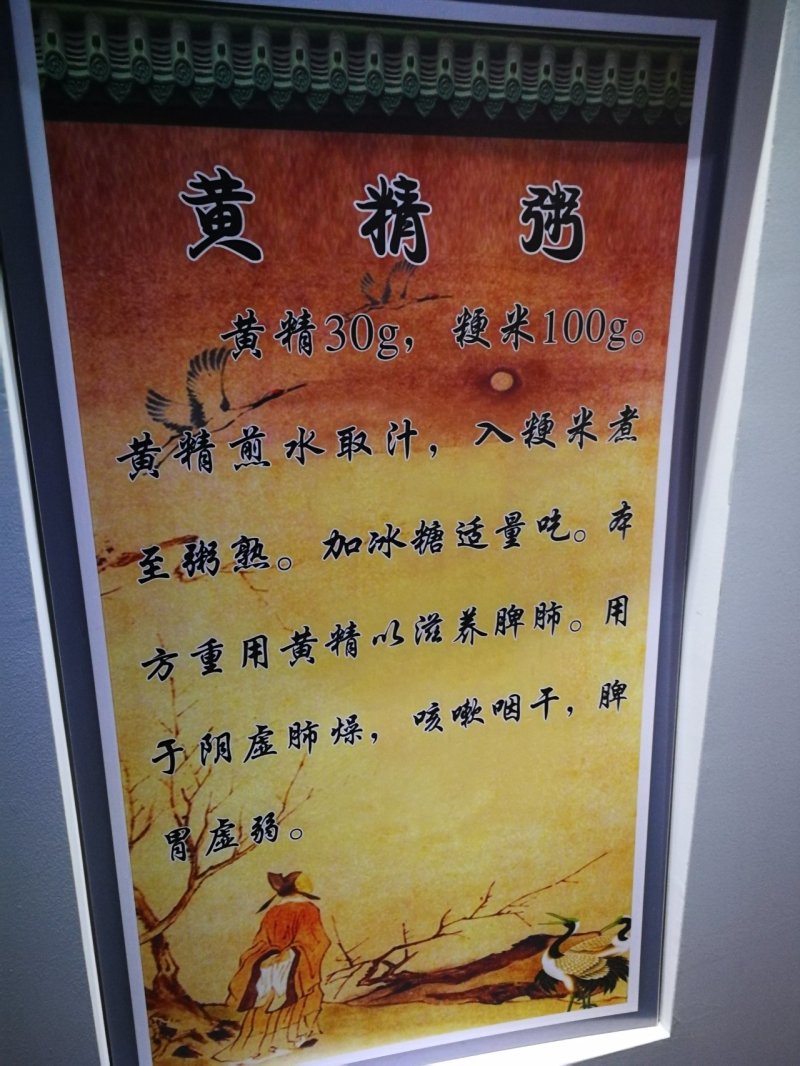 黄精粥
黄精30g，粳米100g。
黄精煎水取汁，入粳米煮
至粥熟。加冰糖适量吃。本
方重用黄精以滋养脾肺。用
于阴虚肺燥，咳嗽咽干，脾
胃虚弱。